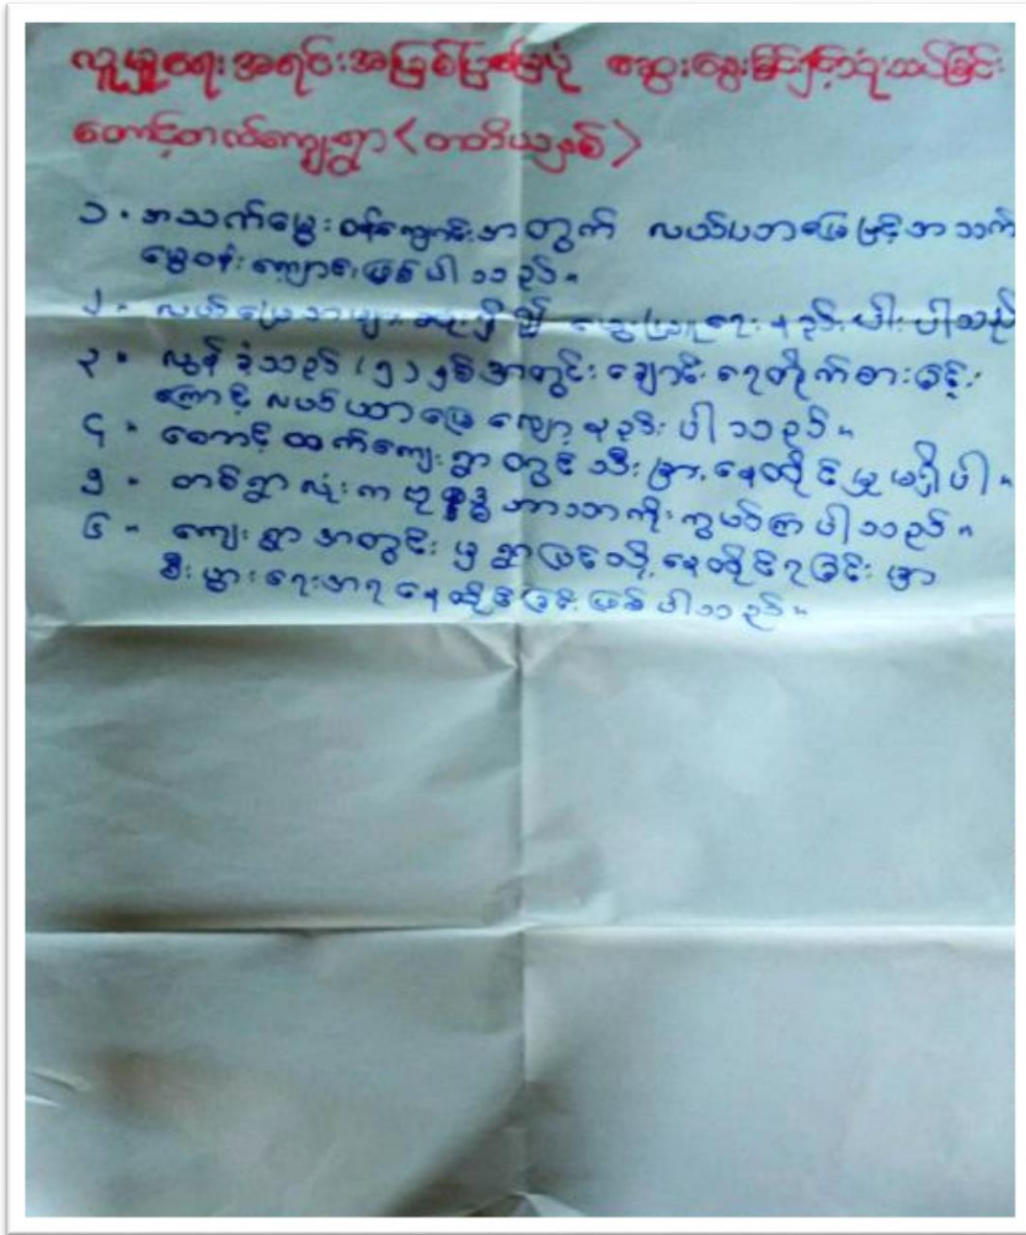 လူမှုရေးအရင်းအမြစ်ပြမြေပုံ ဆွေးနွေးခြင်းနှင့်သုံးသပ်ခြင်း
တောင့်တလ်ကျေးရွာ <တတိယနှစ်>
၁။ အသက်မွေးဝမ်းကျောင်းအတွက် လယ်ယာမြေဖြင့်အသက်
မွေးဝမ်းကျောင်းဖြစ်ပါသည်။
၂။ လယ်မြေအများဆုံးရှိ၍ မွေးမြူရေးနည်းပါးပါသည်
၃။ လွန်ခဲ့သည် (၅) နှစ်အတွင်း ချောင်းရေတိုက်စားခြင်း
ကြောင့် လယ်ယာမြေလျော့နည်းပါသည်။
၄။ တောင့်ထက်ကျေးရွာတွင် သီးခြားနေထိုင်မှုမရှိပါ။
၅။ တစ်ရွာလုံးက ဗုဒ္ဓဘာသာကိုးကွယ်ကြပါသည်။
၆။ ကျေးရွာအတွင်းမှ ရွာပြင်သို့နေထိုင်ရခြင်းမှာ
စီးပွားရေးအရနေထိုင်ခြင်းဖြစ်ပါသည်။